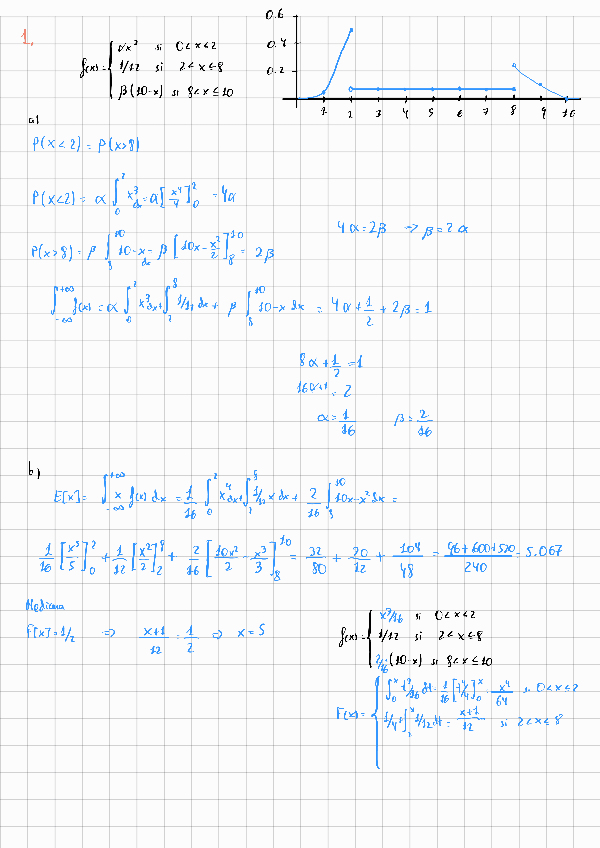 1.
f(x)= { αx³ si 0<x≤2
1/12 si 2<x≤8
β(10-x) si 8<x≤10
0.6
0.4
0.2
1 2 3 4 5 6 7 8 9 10
a)
P(x<2) = P(x>8)
P(x<2) = α ∫₀² x³ dx = α [x⁴/4]₀² = 4α
P(x>8) = β ∫₈¹⁰ 10-x dx = β [10x - x²/2]₈¹⁰ = 2β
4α=2β → β=2α
∫₋∞⁺∞ f(x) = α ∫₀² x³dx + ∫₂⁸ 1/12 dx + β ∫₈¹⁰ 10-x dx = 4α + 1/2 + 2β = 1
8α + 1/2 = 1
16α+1 = 2
α = 1/16 β = 2/16
b)
E[x] = ∫₋∞⁺∞ x f(x) dx = 1/16 ∫₀² x⁴dx + ∫₂⁸ 1/12 x dx + 2/16 ∫₈¹⁰ 10x-x² dx =
1/16 [x⁵/5]₀² + 1/12 [x²/2]₂⁸ + 2/16 [10x²/2 - x³/3]₈¹⁰ = 32/80 + 20/12 + 104/48 = (96+600+520)/240 = 5.067
Mediana
F[x]=1/2 ⇒ (x+1)/12 = 1/2 ⇒ x=5
f(x)= { x³/16 si 0<x≤2
1/12 si 2<x≤8
2/16·(10-x) si 8<x≤10
F(x)= { ∫₀ˣ t³/16 dt = 1/16 [t⁴/4]₀ˣ = x⁴/64 si 0<x≤2
1/4 + ∫₂ˣ 1/12 dt = (x+1)/12 si 2<x≤8